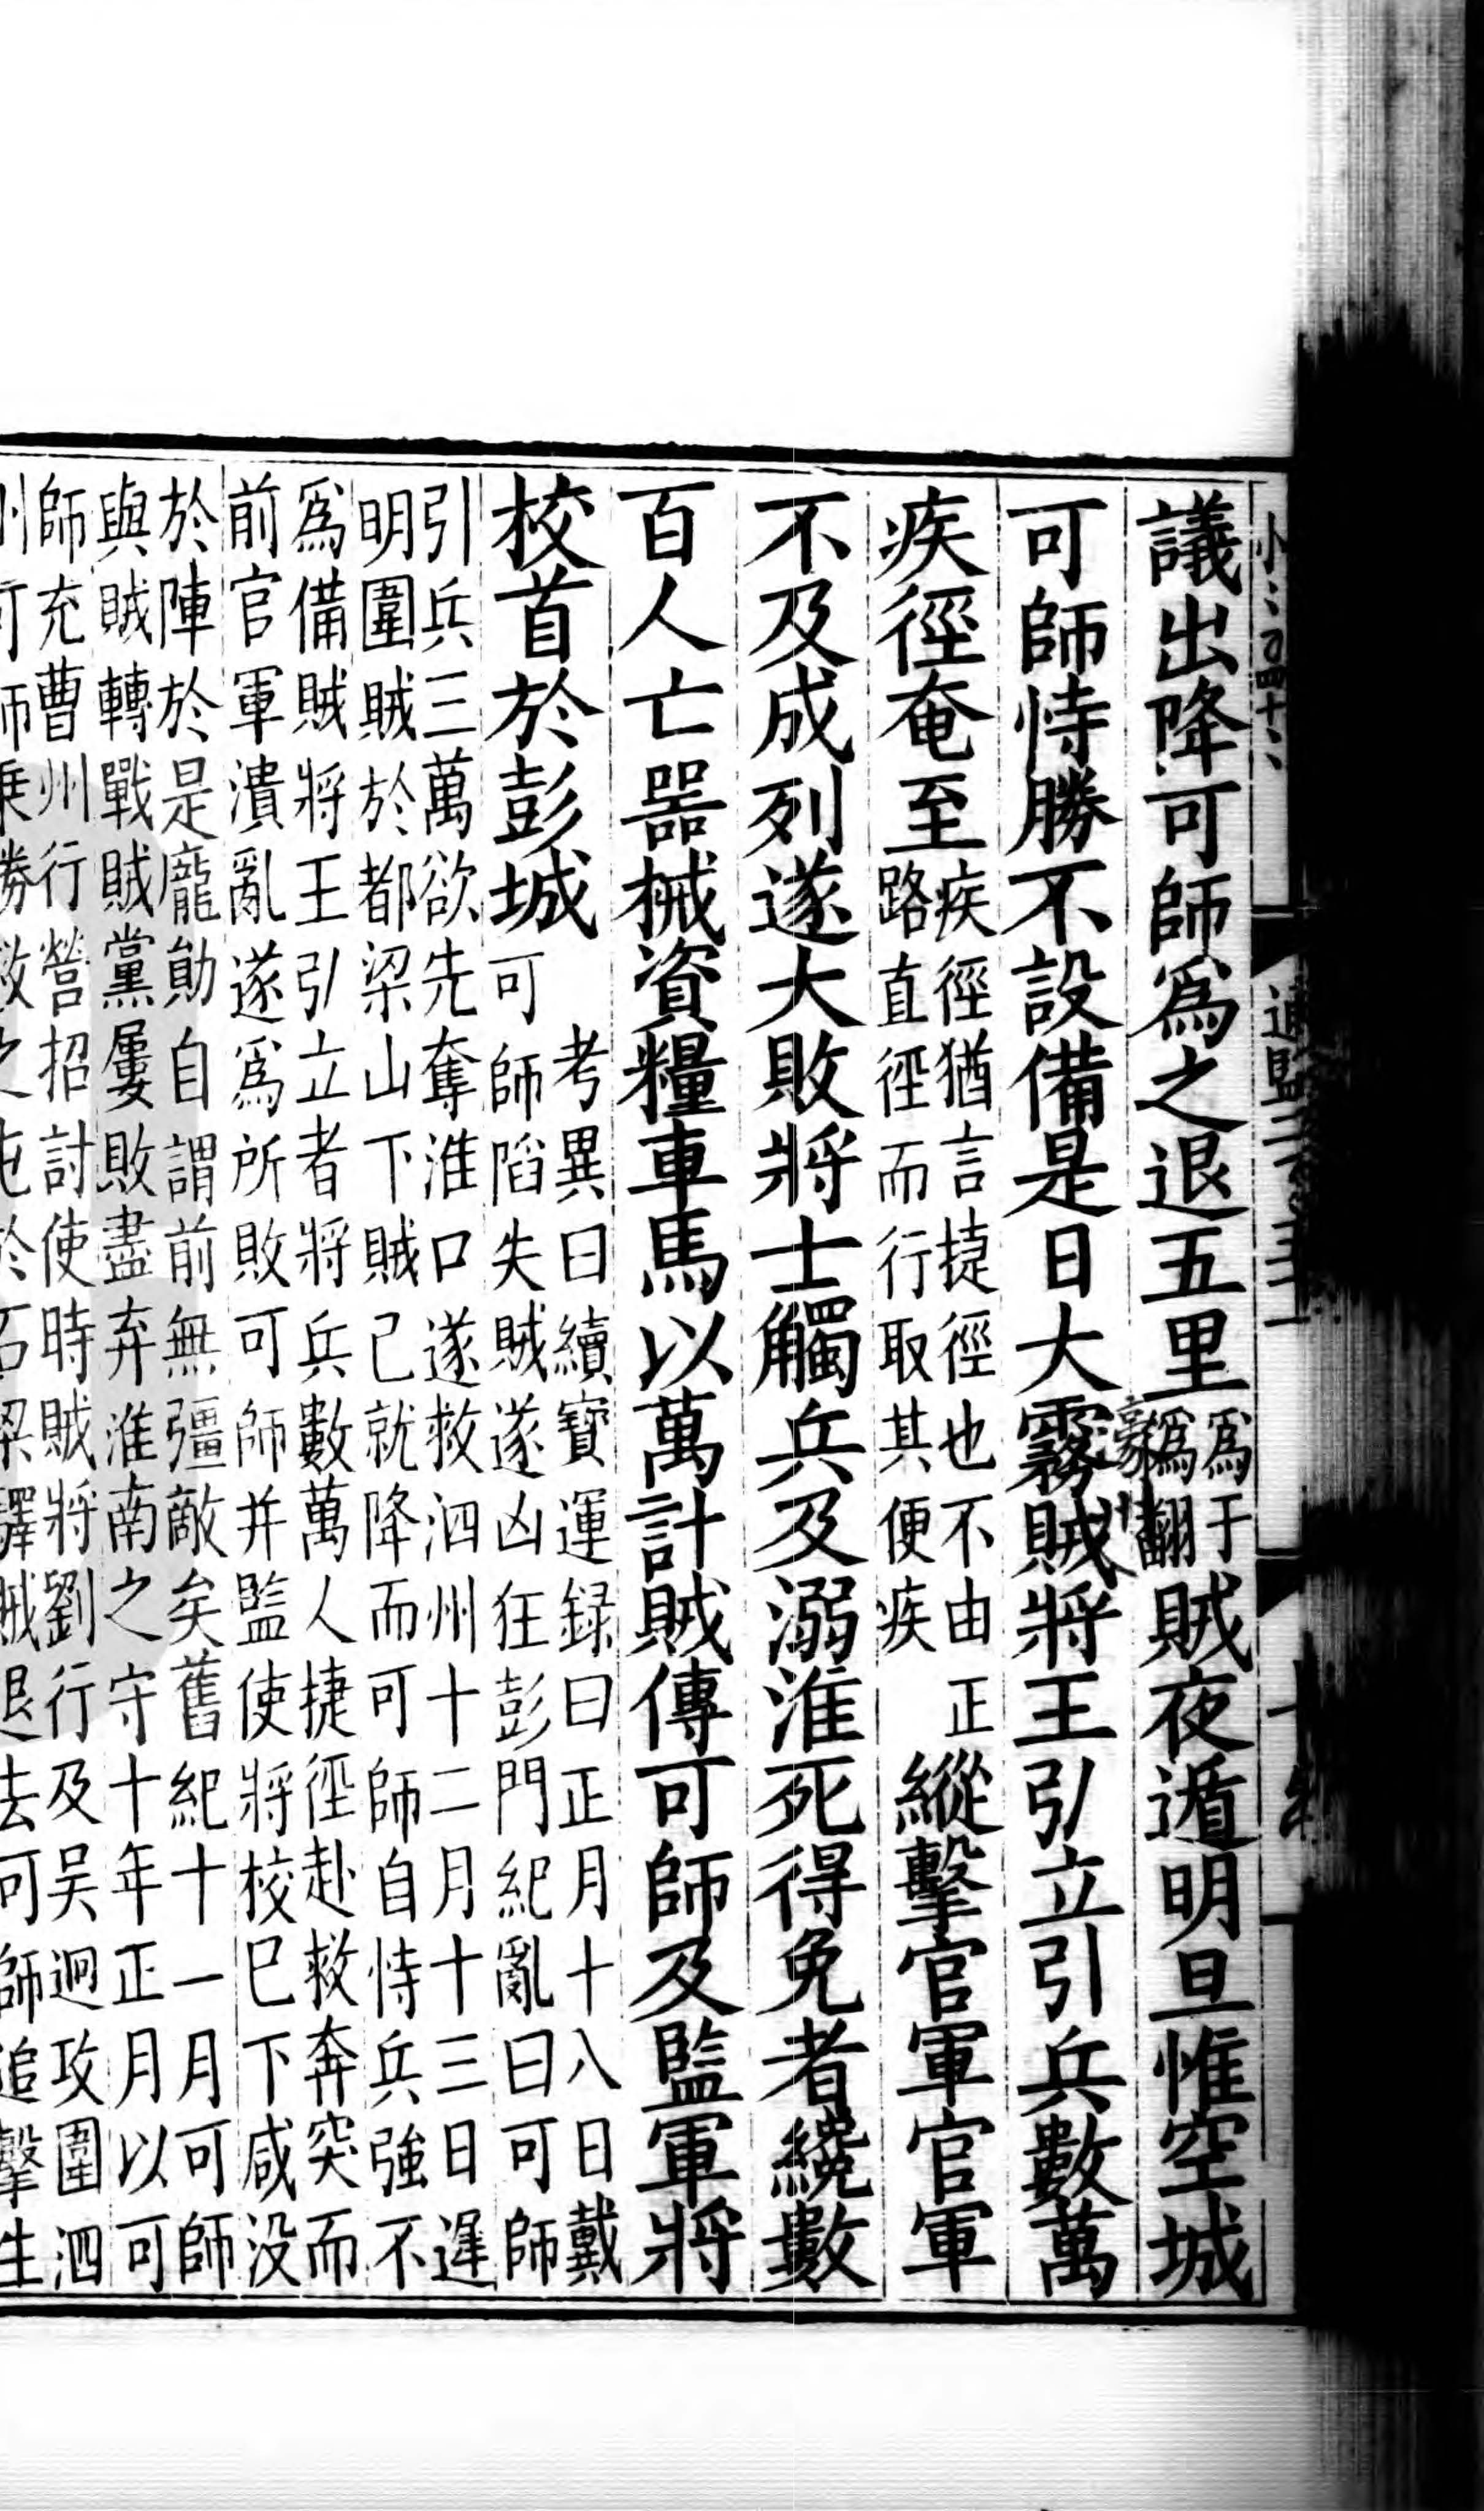 議出降可師爲之退五里爲于僞翻賊夜遁明旦惟空城
可師恃勝不設備是日大霧賊將王引立引兵數萬
疾徑奄至疾徑猶言捷徑也不由正路直徑而行取其便疾縱擊官軍官軍
不及成列遂大敗將士觸兵及溺淮死得免者纔數
百人亡器械資糧車馬以萬計賊傳可師及監軍將
校首於彭城
考異曰續寶運録曰正月十八日戴
可師陷失賊遂凶狂彭門紀亂曰可師
引兵三萬欲先奪淮口遂救泗州十二月十三日遲
明圍賊於都梁山下賊已就降而可師自恃兵強不
爲備賊將王引立者將兵數萬人捷徑赴救奔突而
前官軍潰亂遂爲所敗可師并監使將校巳下咸没
於陣於是龐勛自謂前無彊敵矣舊紀十一月可師
與賊轉戰賊黨屢敗盡弃淮南之守十年正月以可
師充曹州行營招討使時賊將劉行及吴迥攻圍泗
州可師乗勝救之屯於石梁驛賊退去可師追擊生